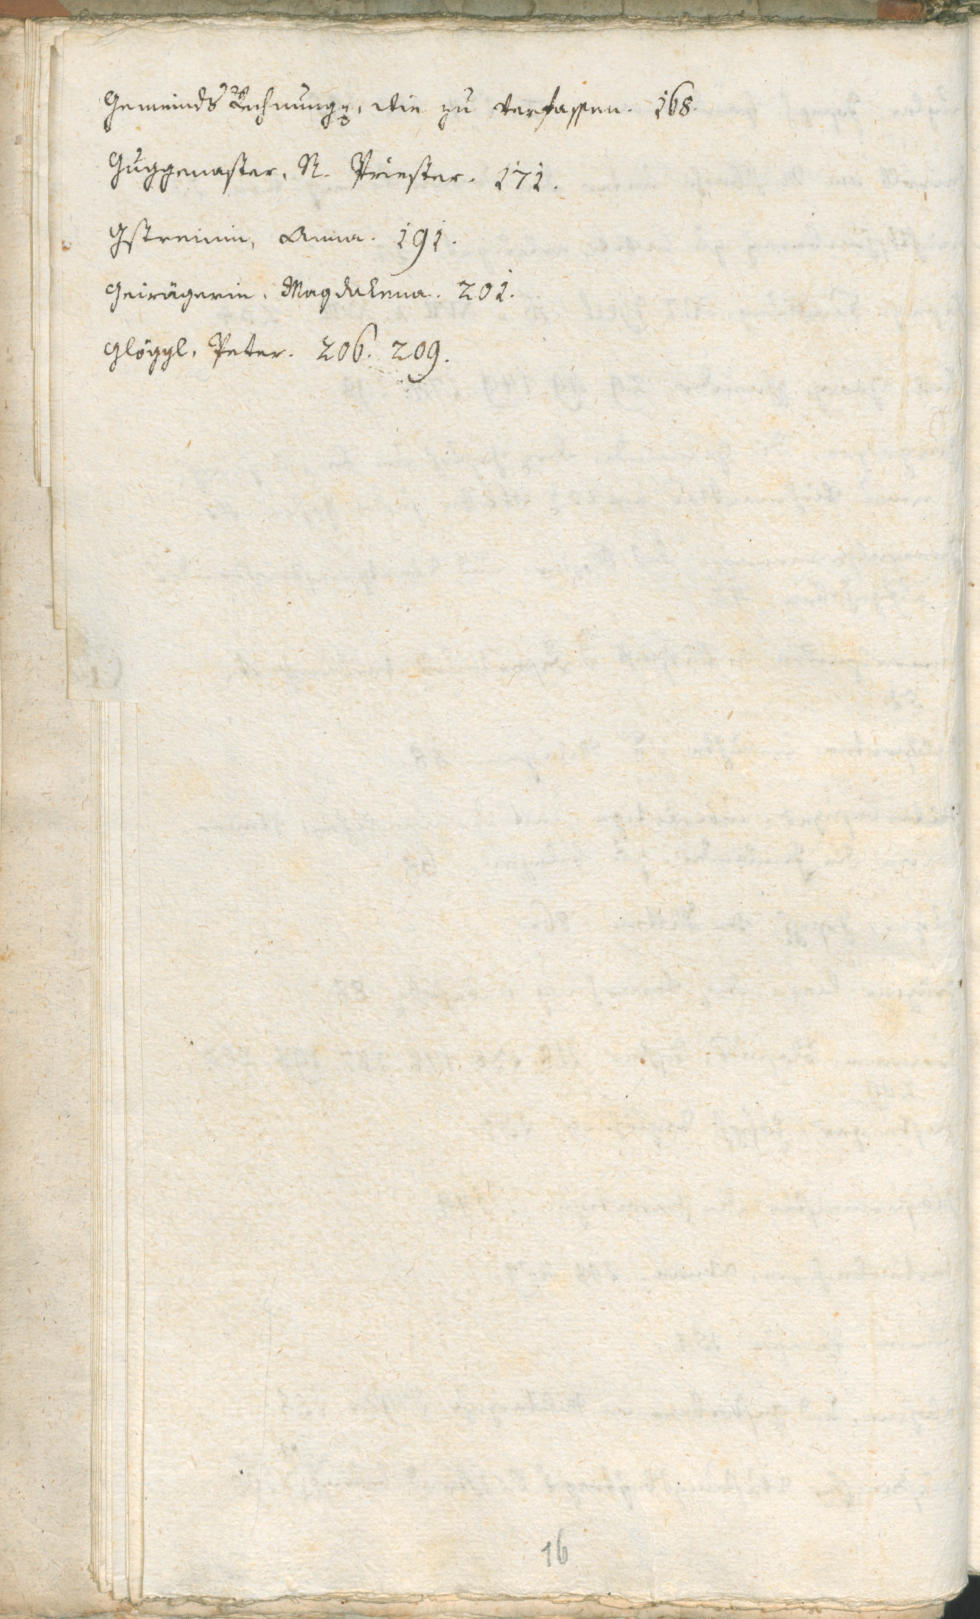 Gemeinds Rechnungen, wie zu verfassen. 168.
Guggemaster, N. Priester. 171.
Gstreinin, Anna. 191.
Geirägerin, Magdalena. 201.
Glöggl, Peter. 206. 209.
16